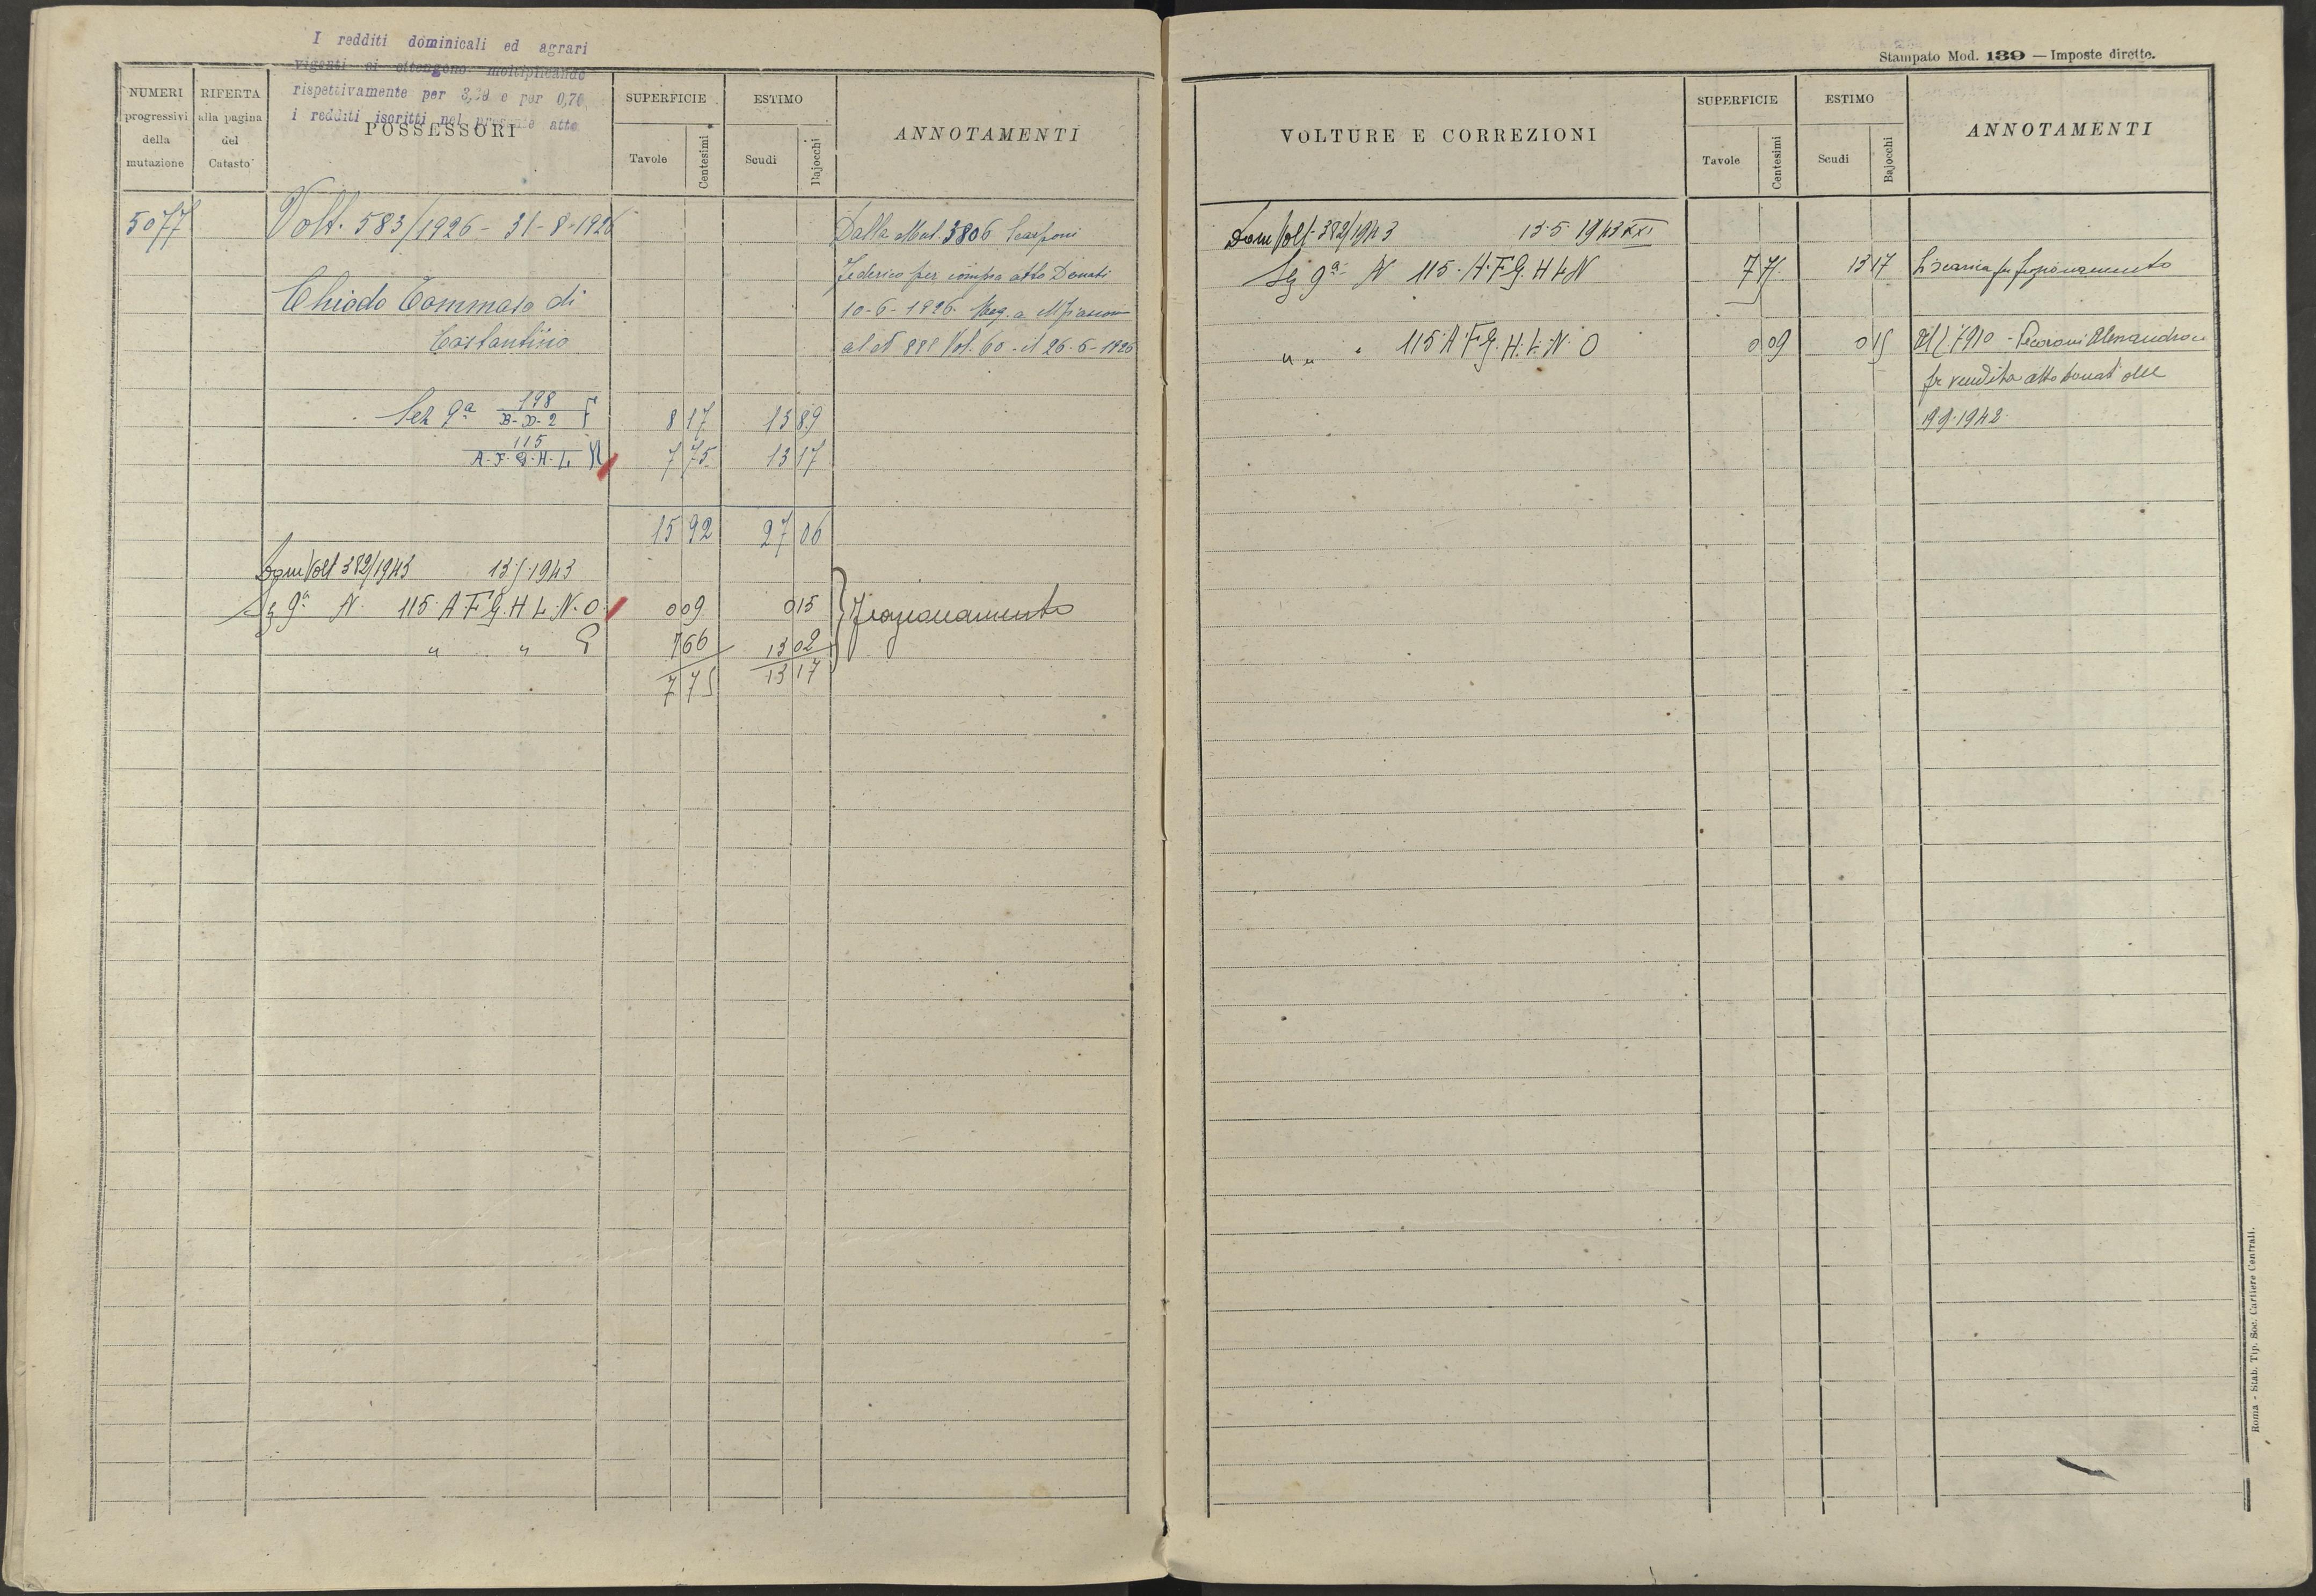 I redditi dominicali ed agrari
vigenti si ottengono moltiplicando
rispettivamente per 3,30 e per 0,70
i redditi iscritti nel presente atto
NUMERI progressivi della mutazione
RIFERTA alla pagina del Catasto
POSSESSORI
SUPERFICIE
Tavole Centesimi
ESTIMO
Scudi Bajocchi
ANNOTAMENTI
5077 Volt. 583/1926 - 31-8-1926 Dalla Mut. 3806 Scarponi
Federico per compra atto Donati
Chiodo Tommaso di 10-6-1926. Reg. a
Costantino al N 888 Vol. 60 - il 26-6-1926
Sez 9ª 198 / B-D-2 F 8 17 13 89
115 / A-F-G-H-L N 7 75 13 17
15 92 27 06
Dom Volt 382/1943 13.5.1943
Sez 9ª N. 115 A.F.G.H.L.N.O. 0 09 0 15 Frazionamento
" " 7 66 13 02
7 75 13 17
Stampato Mod. 139 — Imposte dirette.
VOLTURE E CORREZIONI
SUPERFICIE
Tavole Centesimi
ESTIMO
Scudi Bajocchi
ANNOTAMENTI
Dom Volt. 382/1943 13-5-1943 XXI
Sez 9ª N 115. A.F.G.H L N 7 75 13 17 Si scarica per frazionamento
" " " 115 A.F.G.H.L.N.O 0 09 0 15 7910 - Pecorari Alessandro
per vendita atto Donati del
19.9.1942.
Roma - Stab. Tip. Soc. Cartiere Centrali.